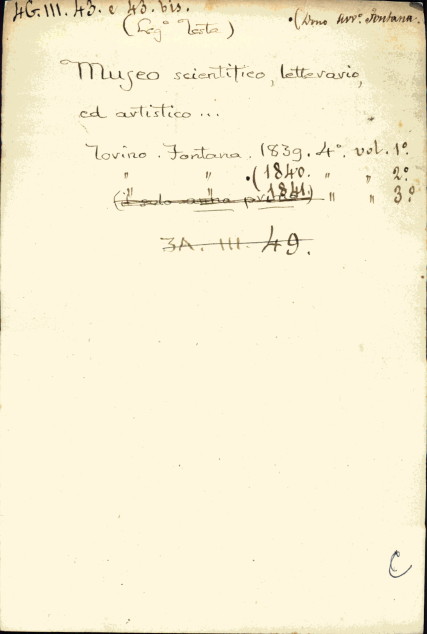 4G. III. 43. e 43. bis.
(Leg.º Testa)
•(Dono Avv.º Fontana.
Museo scientifico, letterario,
ed artistico...
Torino. Fontana. 1839. 4º. vol. 1º.
" " •(1840. " " 2º.
" " 1841.) " " 3º
3A. III. 49.
C